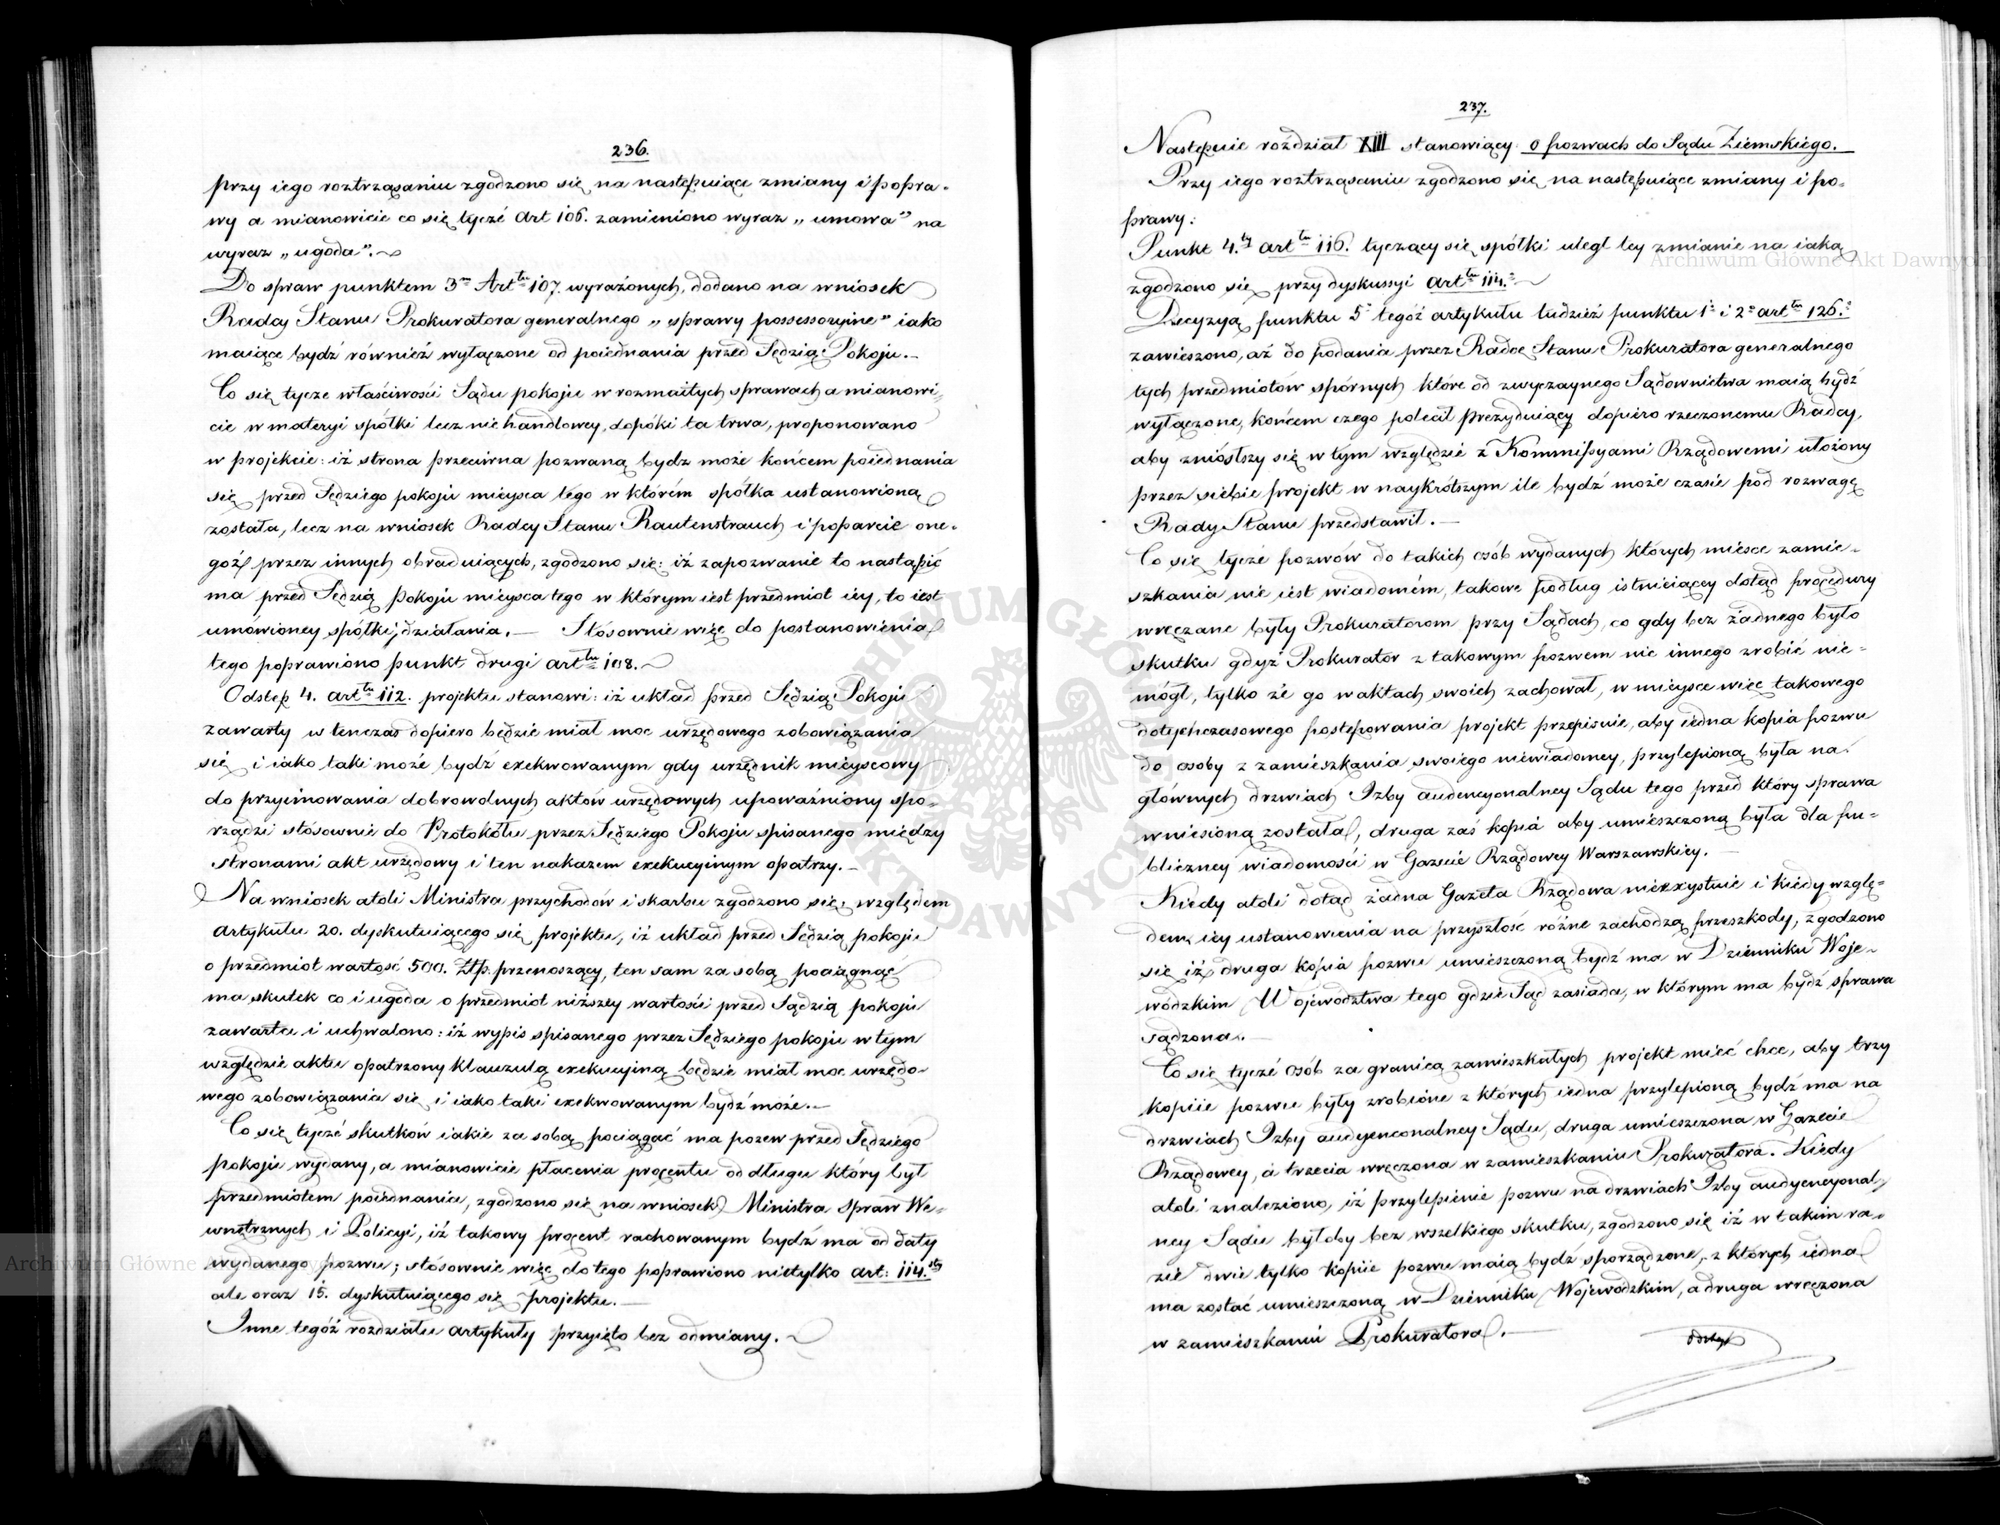 236.
przy iego roztrząsaniu zgodzono się na następuiące zmiany i popra-
wy a mianowicie co się tyczé Art 106. zamieniono wyraz „umowa" na
wyraz „ugoda".
Do spraw punktem 3m Arttu 107. wyrażonych, dodano na wniosek
Radcy Stanu Prokuratora generalnego „sprawy possessoryine" iako
maiące bydź również wyłączone od poiednania przed Sędzią Pokoju.—
Co się tycze właściwości Sądu pokoju w rozmaitych sprawach a mianowi-
cie w materyi spółki lecz nie handlowey, dopóki ta trwa, proponowano
w projekcie: iż strona przeciwna pozwaną bydz może końcem poiednania
się przed Sędziego pokoju mieysca tégo w którém spółka ustanowioną
została, lecz na wniosek Radcy Stanu Rautenstrauch i poparcie one-
goż przez innych obraduiących, zgodzono się: iż zapozwanie to nastąpić
ma przed Sędzią Pokoju mieysca tego w którym iest przedmiot iey, to iest
umówioney spółki, działania.— Stósownie więc do postanowienia
tego poprawiono punkt drugi arttu 108.
Odstęp 4. arttu 112. projektu stanowi: iż układ przed Sędzią Pokoju
zawarty w tenczas dopiero będzie miał moc urzędowego zobowiązania
się i iako taki może bydź exekwowanym gdy urzędnik mieyscowy
do przyimowania dobrowolnych aktów urzędowych upoważniony spo-
rządzi stósownie do Protokółu przez Sędziego Pokoju spisanego między
stronami akt urzędowy i ten nakazem exekucyinym opatrzy.—
Na wniosek atoli Ministra przychodów i skarbu zgodzono się, względem
artykułu 20. dyskutuiącego się projektu, iż układ przed Sędzią pokoju
o przedmiot wartość 500. Złp. przenoszący, ten sam za sobą pociągnąć
ma skutek co i ugoda o przedmiot niższey wartości przed Sądzią pokoju
zawarta i uchwalono: iż wypis spisanego przez Sędziego pokoju w tym
względzie aktu opatrzony klauzulą exekucyiną będzie miał moc urzędo-
wego zobowiązania się i iako taki exekwowanym bydź może.—
Co się tyczé skutków iakie za sobą pociągać ma pozew przed Sędziego
pokoju wydany, a mianowicie płacenia procentu od długu który był
przedmiotem poiednania, zgodzono się na wniosek Ministra Spraw We-
wnętrznych i Policyi, iż takowy procent rachowanym bydź ma od daty
wydanego pozwu; stósownie więc do tego poprawiono nietylko art: 114.sty
ale oraz 15. dyskutuiącego się projektu.—
Inne tegóż rozdziału artykuły przyięto bez odmiany.
237.
Następnie rozdział XIII stanowiący o pozwach do Sądu Ziemskiego.
Przy iego roztrząsaniu zgodzono się na następuiące zmiany i po-
prawy:
Punkt 4.ty arttu 116. tyczący się spółki uległ tey zmianie na iaką
zgodzono się przy dyskussyi arttu 114.
Decyzyą punktu 5o tegóż artykułu tudzież punktu 1o i 2o arttu 126.
zawieszono, aż do podania przez Radcę Stanu Prokuratora generalnego
tych przedmiotów spórnych które od zwyczaynego Sądownictwa maią bydź
wyłączone, końcem czego polecił Prezyduiący dopiero rzeczonemu Radcy,
aby zniósłszy się w tym względzie z Kommissyami Rządowemi ułożony
przez siebie projekt w naykrótszym ile bydź może czasie pod rozwagę
Rady Stanu przedstawił.—
Co się tyczé pozwów do takich osób wydanych których miesce zamie-
szkania nie iest wiadomém, takowe podług istnieiącey dotąd procedury
wręczane były Prokuratorom przy Sądach, co gdy bez żadnego było
skutku gdyż Prokurator z takowym pozwem nic innego zrobić nie-
mógł, tylko że go w aktach swoich zachował, w mieysce więc takowego
dotychczasowego postępowania projekt przepisuie, aby iedna kopia pozwu
do osoby z zamieszkania swoiego niewiadomey, przylepioną była na
głównych drzwiach Izby audencyonalney Sądu tego przed który sprawa
wniesioną została, druga zaś kopia aby umieszczoną była dla pu-
bliczney wiadomości w Gazecie Rządowey Warszawskiey.—
Kiedy atoli dotąd żadna Gazeta Rządowa nieexystuie i kiedy wzglę-
dem iey ustanowienia na przyszłość różne zachodzą przeszkody, zgodzono
się iż druga kopia pozwu umieszczoną bydź ma w Dzienniku Woje-
wódzkim Województwa tego gdzie Sąd zasiada, w którym ma bydź sprawa
sądzona.—
Co się tyczé osób za granicą zamieszkałych projekt mieć chce, aby trzy
kopiie pozwu były zrobione z których iedna przylepioną bydź ma na
drzwiach Izby audyenconalney Sądu, druga umieszczona w Gazecie
Rządowey, a trzecia wręczona w zamieszkaniu Prokuratora. Kiedy
atoli znaleziono, iż przylepienie pozwu na drzwiach Izby audyencyonal-
ney Sądu byłoby bez wszelkiego skutku, zgodzono się iż w takim ra-
zie dwie tylko kopiie pozwu maią bydz sporządzone, z których iedna
ma zostać umieszczoną w Dzienniku Wojewódzkim, a druga wręczona
w zamieszkaniu Prokuratora.—
Odstęp
Archiwum Główne Akt Dawnych
ARCHIWUM GŁÓWNE AKT DAWNYCH
Archiwum Główne Akt Dawnych